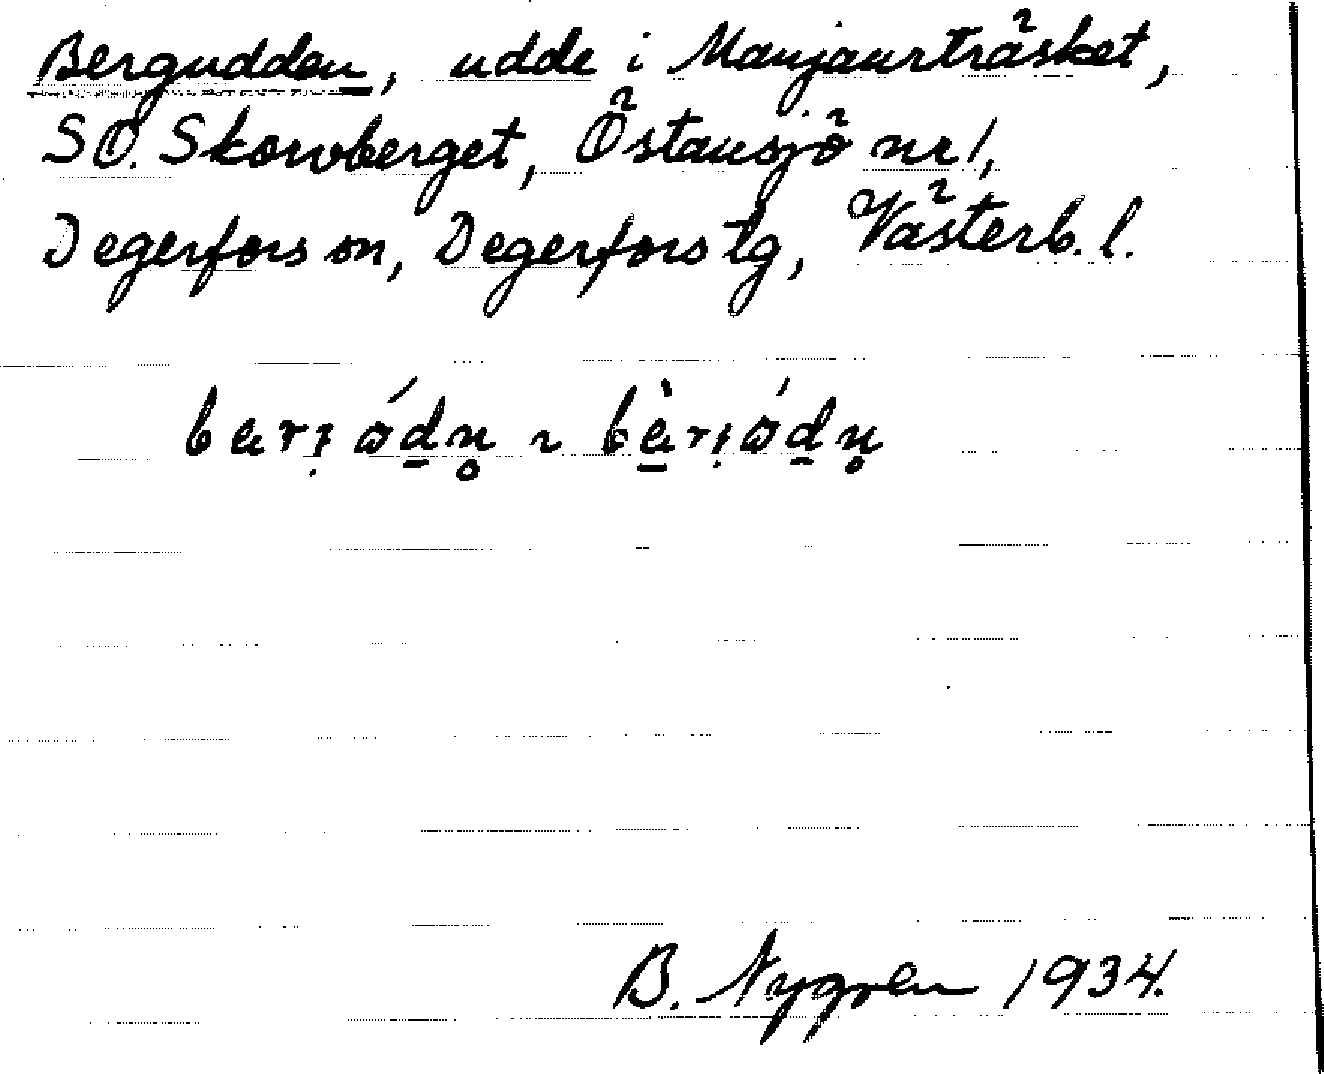 Bergudden, udde i Manjaurträsket,
SO. Skarvberget, Östansjö nr 1,
Degerfors sn, Degerfors tg, Västerb. l.
B. Nygren 1934.